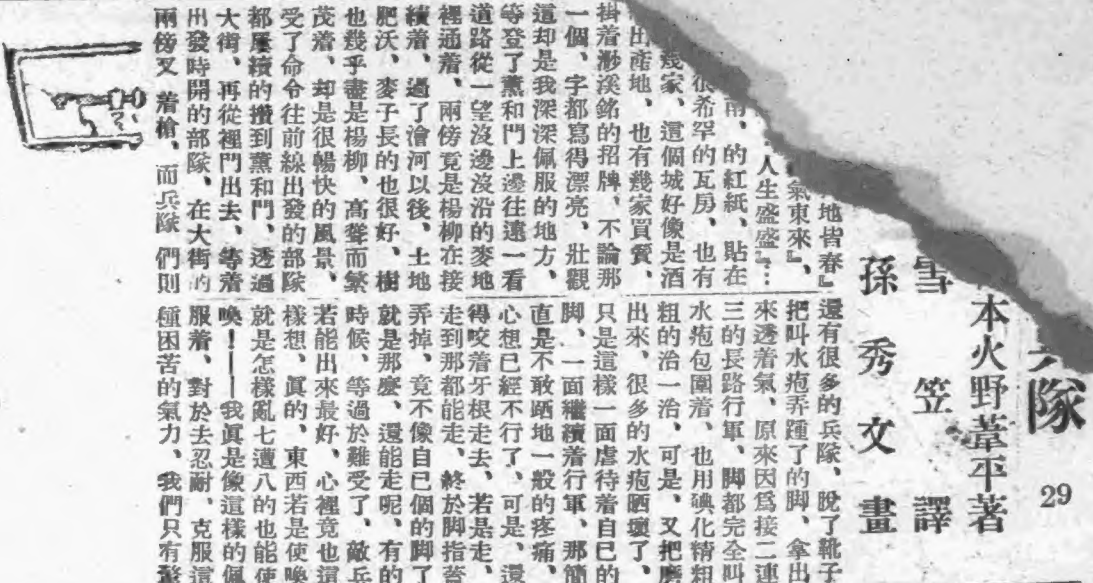 隊 29
本火野葦平著
雪笠譯
孫秀文畫
地皆春』
氣東來』、
人生盛盛』…
、的紅紙、貼在
很希罕的瓦房、也有
幾家、這個城好像是酒
出產地、也有幾家買賣、
掛着溪銘的招牌、不論那
一個、字都寫得漂亮、壯觀
這却是我深深佩服的地方、
等登了薰和門上邊往遠一看
道路從一望沒邊沒沿的麥地
裡通着、兩傍竟是楊柳在接
續着、過了澮河以後、土地
肥沃、麥子長的也很好、樹
也幾乎盡是楊柳、高聳而繁
茂着、却是很暢快的風景、
受了命令往前線出發的部隊
都屢續的攢到薰和門、透過
大街、再從裡門出去、等着
出發時開的部隊、在大街的
兩傍叉着槍、而兵隊們則
還有很多的兵隊、脫了靴子
把叫水疱弄踵了的脚、拿出
來透着氣、原來因爲接二連
三的長路行軍、脚都完全叫
水疱包圍着、也用碘化精粗
粗的治一治、可是、又把磨
出來、很多的水疱晒壞了、
只是這樣一面虐待着自已的
脚、一面繼續着行軍、那簡
直是不敢跴地一般的疼痛、
心想已經不行了、可是、還
得咬着牙根走去、若是走、
走到那都能走、終於脚指
弄掉、竟不像自已個的脚了
就是那麽、還能走呢、有的
時候、等過於難受了、敵兵
若能出來最好、心裡竟也這
樣想、眞的、東西若是使喚
就是怎樣亂七遭八的也能使
喚！——我眞是像這樣的佩
服着、對於去忍耐、克服這
種困苦的氣力、我們只有驚